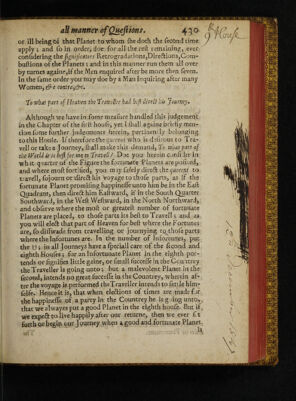 all manner of Questions. 430
9 House
or ill being of that Planet to whom she doth the second time
apply; and so in order, doe for all the rest remaining, ever
considering the significators Retrogradations, Directions, Com-
bustions of the Planets; and in this manner run them all over
by turnes againe, if the Men enquired after be more then seven.
In the same order you may doe by a Man enquiring after many
Women, & è contrario.
To what part of Heaven the Traveller had best direct his Journey.
Although we have in some measure handled this judgement
in the Chapter of the first house, yet I shall againe briefly men-
tion some further judgements herein, pertinently belonging
to this House. If therefore the querent who is desirous to Tra-
vell or take a Journey, shall make this demand, To what part of
the World is it best for me to Travell? Doe you herein consider in
what quarter of the Figure the fortunate Planets are posited,
and where most fortified, you may safely direct the querent to
travell, sojourn or direct his voyage to those parts, as if the
fortunate Planet promising happinesse unto him be in the East
Quadrant, then direct him Eastward, if in the South Quarter
Southward, in the West Westward, in the North Northward,
and observe where the most or greatest number of fortunate
Planets are placed, to those parts its best to Travell; and as
you will elect that part of Heaven for best where the Fortunes
are, so disswade from travelling or journying to those parts
where the Infortunes are. In the number of Infortunes, put
the ☋: in all Journeys have a speciall care of the second and
eighth Houses; for an Infortunate Planet in the eighth por-
tends or signifies little gaine, or small successe in the Countrey
the Traveller is going unto: but a malevolent Planet in the
second, intends no great successe in the Countrey, wherein af-
ter the voyage is performed the Traveller intends to settle him-
selfe. Hence it is, that when elections of times are made for
the happinesse of a party in the Country he is going unto,
that we alwayes put a good Planet in the eighth house. But if
we expect to live happily after our returne, then we ever set
forth or begin our Journey when a good and fortunate Planet
is